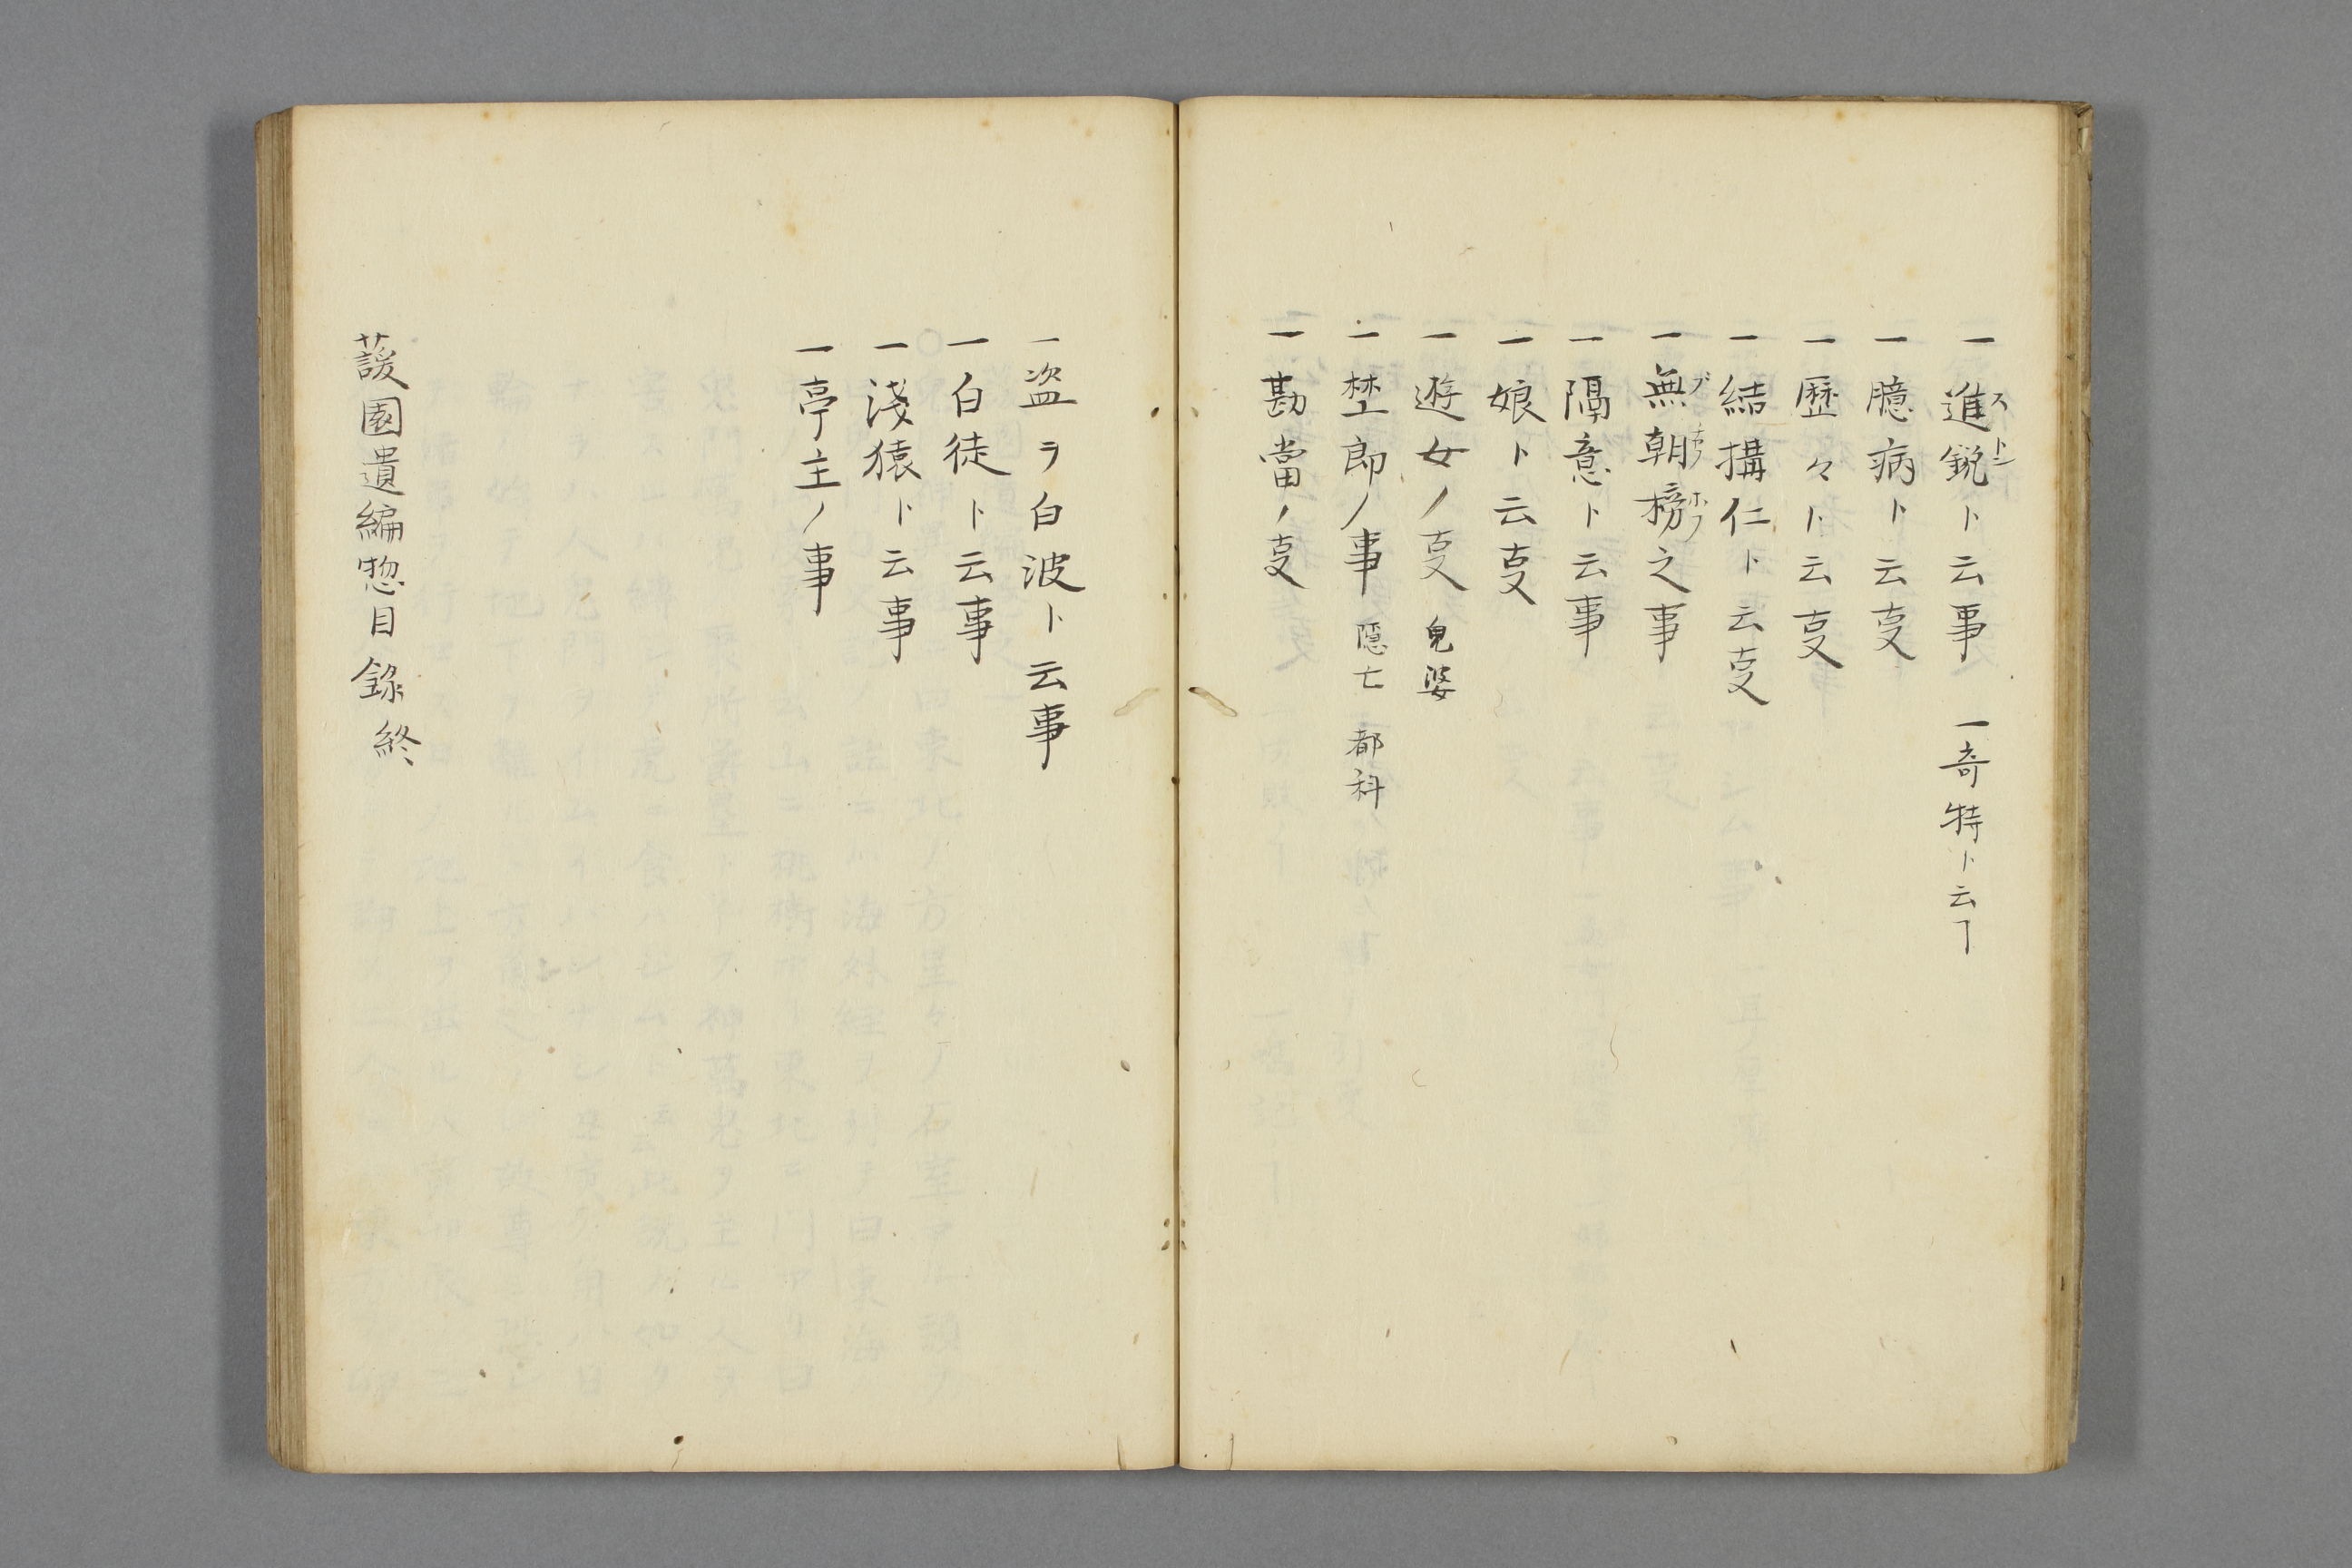 一進鋭ト云事　一奇特ト云ヿ
一臆病ト云㕝
一歴々ト云㕝
一結搆仁ト云㕝
一無朝榜之事
一隔意ト云事
一娘ト云㕝
一遊女ノ㕝　鬼婆
一埜郎ノ事　隠亡　都科
一勘當ノ㕝
一盗ヲ白波ト云事
一白徒ト云事
一淺猿ト云事
一亭主ノ事
蘐園遺編惣目錄終